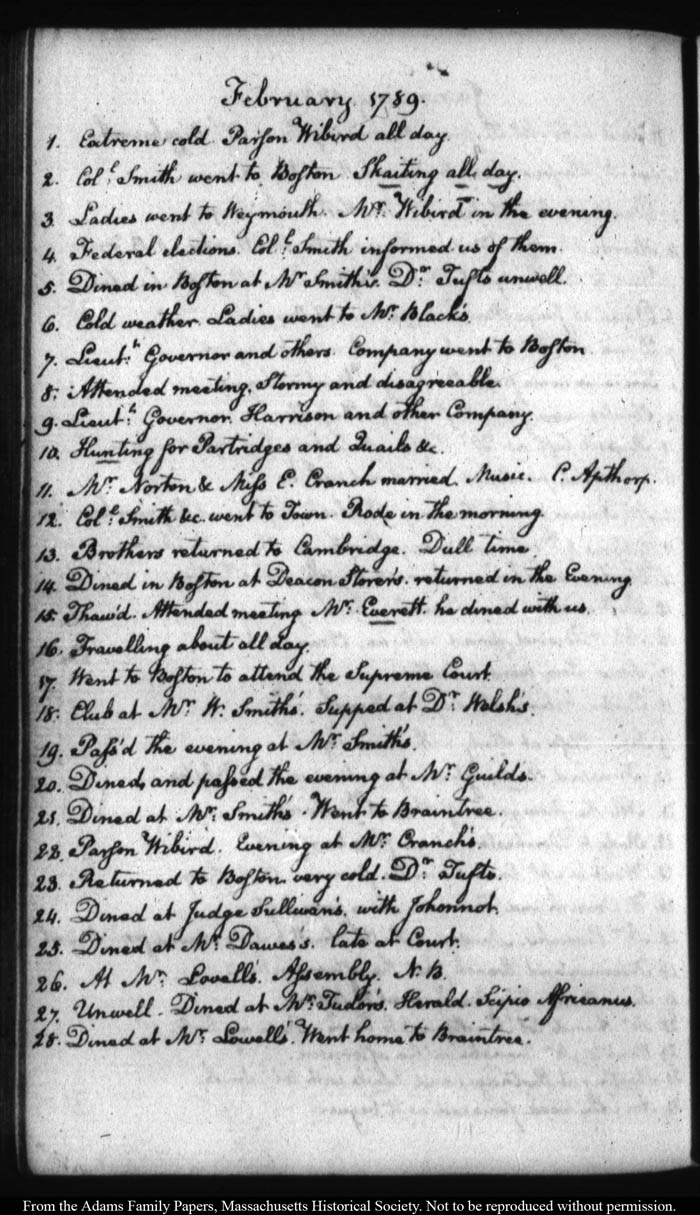 February 1789.
1. Extreme cold. Parson Wibird all day.
2. Coll. Smith went to Boston. Skaiting all day.
3. Ladies went to Weymouth. Mr. Wibird in the evening.
4. Federal elections. Coll. Smith informed us of them.
5. Dined in Boston at Mr. Smith's. Dr. Tufts unwell.
6. Cold weather. Ladies went to Mr. Black's.
7. Lieutt. Governor and others. Company went to Boston
8. Attended meeting. Stormy and disagreeable.
9. Lieutt. Governor. Harrison and other Company.
10. Hunting for Partridges and Quails &c.
11. Mr. Norton & Miss E. Cranch married. Music. C. Apthorp.
12. Coll. Smith &c. went to Town. Rode in the morning.
13. Brothers returned to Cambridge. Dull time.
14. Dined in Boston at Deacon Storer's. returned in the Evening
15. Thaw'd. Attended meeting Mr. Everett. he dined with us.
16. Travelling about all day.
17. Went to Boston to attend the Supreme Court.
18. Club at Mr. W. Smith's. Supped at Dr. Welsh's.
19. Pass'd the evening at Mr. Smith's.
20. Dined, and passed the evening at Mr. Guilds.
21. Dined at Mr. Smith's. Went to Braintree.
22. Parson Wibird. Evening at Mr. Cranch's.
23. Returned to Boston. very cold. Dr. Tufts.
24. Dined at Judge Sullivan's. with Johonnot.
25. Dined at Mr. Dawes's. late at Court.
26. At Mr. Lovell's. Assembly. N.B.
27. Unwell. Dined at Mr. Tudor's. Herald. Scipio Africanus.
28. Dined at Mr. Lowell's. Went home to Braintree.
From the Adams Family Papers, Massachusetts Historical Society. Not to be reproduced without permission.